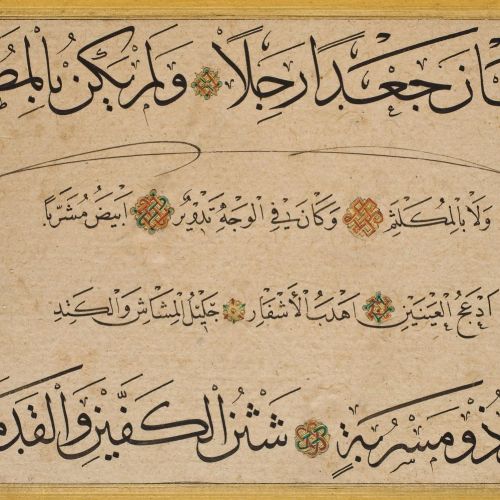 جَعْدًا رَجِلًا وَلَمْ يَكُنْ بِالْمُطَ
وَلَا بِالْمُكَلْثَمِ وَكَانَ فِي الْوَجْهِ تَدْوِيرٌ اَبْيَضُ مُشَرَّبًا
اَدْعَجُ الْعَيْنَيْنِ اَهْدَبُ الْأَشْفَارِ جَلِيْلُ الْمُشَاشِ وَالْكَتِدِ
ذُو مَسْرُبَةٍ شَثْنُ الْكَفَّيْنِ وَالْقَدَمَ